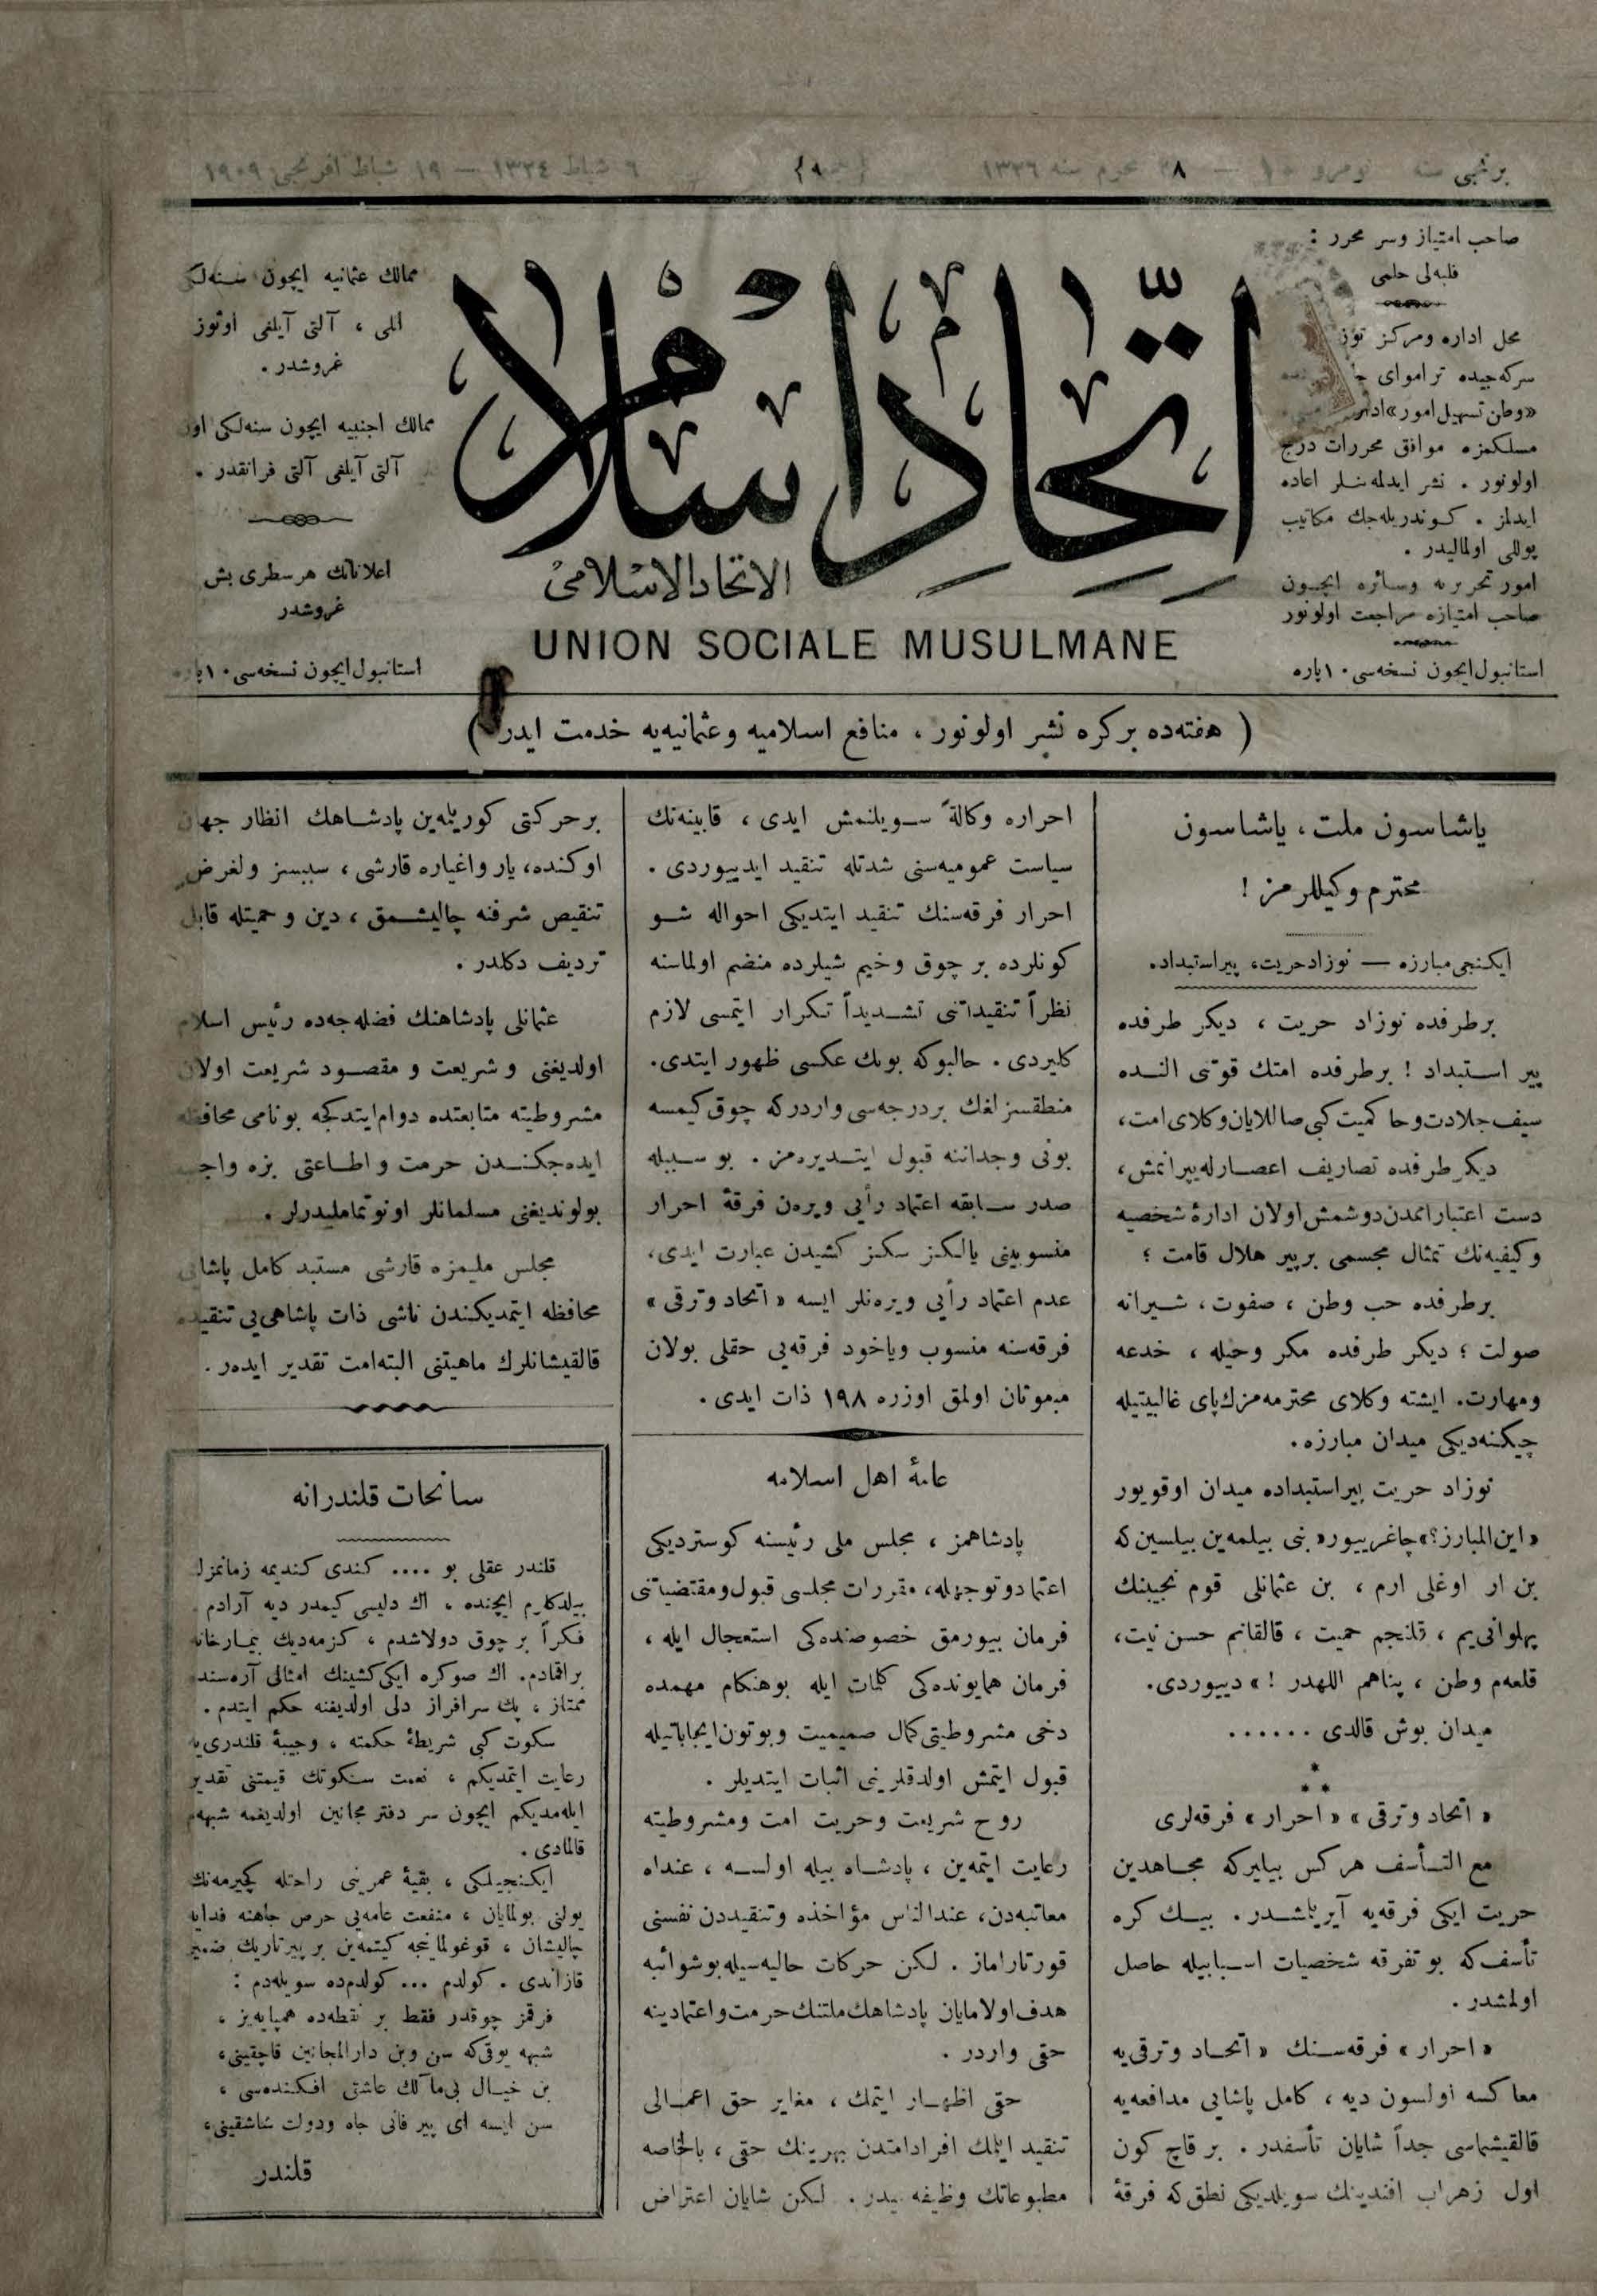 برنجی سنه نومرو ١٠ — ٢٨ محرم سنه ١٣٢٦ ٦ شباط ١٣٢٤ — ١٩ شباط افرنجی ١٩٠٩
صاحب امتیاز وسر محرر :
فلبه‌لی حلمی
محل اداره ومرکز
سرکه‌جیده تراموای
«وطن تسهیل امور»
مسلکمزه موافق محررات درج
اولونور . نشر ایدلمه‌ینلر اعاده
ایدلمز . کوندریله‌جك مکاتیب
پوللی اولمالیدر .
امور تحریریه وسائره ایچون
صاحب امتیازه مراجعت اولونور
استانبول ایچون نسخه‌سی ١٠ پاره
اتّحاد اسلام
الاتحاد الاسلامی
UNION SOCIALE MUSULMANE
ممالك عثمانیه ایچون سنه‌لکی
اللی ، آلتی آیلغی اوتوز
غروشدر .
ممالك اجنبیه ایچون سنه‌لکی اون
آلتی آیلغی آلتی فرانقدر .
اعلاناتك هر سطری بش
غروشدر
استانبول ایچون نسخه‌سی ١٠ پاره
( هفته‌ده بر کره نشر اولونور ، منافع اسلامیه وعثمانیه‌یه خدمت ایدر )
یاشاسون ملت ، یاشاسون
محترم وکیللرمز !
ایکنجی مبارزه — نوزاد حریت، پیر استبداد.
بر طرفده نوزاد حریت ، دیکر طرفده
پیر استبداد ! بر طرفده امتك قوتنی النده
سیف جلادت وحاکمیت کبی صاللایان وکلای امت،
دیکر طرفده تصاریف اعصار له ییپرانمش،
دست اعتبار امتدن دوشمش اولان ادارۀ شخصیه
وکیفیه‌نك تمثال مجسمی بر پیر هلال قامت ؛
بر طرفده حب وطن ، صفوت، شیرانه
صولت ؛ دیکر طرفده مکر وحیله ، خدعه
ومهارت. ایشته وکلای محترمه‌مزك پای غالبیتیله
چیکنه‌دیکی میدان مبارزه.
نوزاد حریت پیر استبداده میدان اوقویور
«این المبارز؟» چاغرییور «بنی بیلمه‌ین بیلسین که
بن ار اوغلی ارم ، بن عثمانلی قوم نجیبنك
پهلوانی‌یم ، قلنجم حمیت ، قالقانم حسن نیت،
قلعه‌م وطن ، پناهم اللهدر ! » دییوردی.
میدان بوش قالدی ......
* * *
« اتحاد وترقی » « احرار » فرقه‌لری
مع التأسف هرکس بیلیرکه مجاهدین
حریت ایکی فرقه‌یه آیریلمشدر. بیك کره
تأسف که بو تفرقه شخصیات اسبابیله حاصل
اولمشدر .
« احرار » فرقه‌سنك « اتحاد وترقی‌یه
معاکسه اولسون دیه ، کامل پاشایی مدافعه‌یه
قالقیشماسی جداً شایان تأسفدر . بر قاچ کون
اول زهراب افندینك سویلدیکی نطق که فرقۀ
احراره وکالةً سویلنمش ایدی ، قابینه‌نك
سیاست عمومیه‌سنی شدتله تنقید ایدییوردی .
احرار فرقه‌سنك تنقید ایتدیکی احواله شو
کونلرده بر چوق وخیم شیلرده منضم اولماسنه
نظراً تنقیداتنی تشدیداً تکرار ایتمسی لازم
کلیردی . حالبوکه بونك عکسی ظهور ایتدی.
منطقسزلغك بر درجه‌سی واردرکه چوق کیمسه
بونی وجداننه قبول ایتدیره‌مز . بو سببله
صدر سابقه اعتماد رأیی ویره‌ن فرقۀ احرار
منسوبینی یالکز سکز کشیدن عبارت ایدی،
عدم اعتماد رأیی ویره‌نلر ایسه « اتحاد وترقی »
فرقه‌سنه منسوب ویاخود فرقه‌یی حقلی بولان
مبعوثان اولمق اوزره ١٩٨ ذات ایدی .
عامۀ اهل اسلامه
پادشاهمز ، مجلس ملی رئیسنه کوستردیکی
اعتماد وتوجهله، مقررات مجلسی قبول ومقتضیاتنی
فرمان بیورمق خصوصنده‌کی استعجال ایله ،
فرمان همایونده‌کی کلمات ایله بوهنکام مهمده
دخی مشروطیتی کمال صمیمیت وبوتون ایجاباتیله
قبول ایتمش اولدقلرینی اثبات ایتدیلر .
روح شریعت وحریت امت ومشروطیته
رعایت ایتمه‌ین ، پادشاه بیله اولسه ، عندالله
معاتبه‌دن، عندالناس مؤاخذه وتنقیددن نفسنی
قورتاراماز . لکن حرکات حالیه‌سیله بو شوائبه
هدف اولامایان پادشاهك ملتنك حرمت واعتمادینه
حقی واردر .
حقی اظهار ایتمك ، مغایر حق اعمالی
تنقید ایتمك افراد امتدن بهرینك حقی ، بالخاصه
مطبوعاتك وظیفه‌سیدر . لکن شایان اعتراض
بر حرکتی کوریلمه‌ین پادشاهك انظار جهان
اوکنده، یار واغیاره قارشی ، سببسز ولغرض
تنقیص شرفنه چالیشمق ، دین وحمیتله قابل
تردیف دکلدر .
عثمانلی پادشاهنك فضله‌جه‌ده رئیس اسلام
اولدیغنی وشریعت ومقصود شریعت اولان
مشروطیته متابعتده دوام ایتدکجه بونامی محافظه
ایده‌جکندن حرمت واطاعتی بزه واجب
بولوندیغنی مسلمانلر اونوتماملیدرلر .
مجلس ملیمزه قارشی مستبد کامل پاشایی
محافظه ایتمدیکندن ناشی ذات پاشاهی‌یی تنقیده
قالقیشانلرك ماهیتنی البته امت تقدیر ایدر .
سانحات قلندرانه
قلندر عقلی بو .... کندی کندیمه زمانمزك
بیلدکلرم ایچنده ، اك دلیسی کیمدر دیه آرادم .
فکراً بر چوق دولاشدم ، کزمه‌دیك بیمارخانه
براقمادم. اك صوکره ایکی کشینك امثالی آره‌سنده
ممتاز ، پك سرافراز دلی اولدیغنه حکم ایتدم .
سکوت کبی شریطۀ حکمته ، وجیبۀ قلندری‌یه
رعایت ایتمدیکم ، نعمت سکوتك قیمتنی تقدیر
ایله‌مدیکم ایچون سر دفتر مجانین اولدیغمه شبهه‌م
قالمادی .
ایکنجیلکی ، بقیۀ عمرینی راحتله کچیرمه‌نك
یولنی بولمایان ، منفعت عامه‌یی حرص جاهنه فدایه
چالیشان ، قوغولماینجه کیتمه‌ین بر پیر تاریك ضمیر
قازاندی . کولدم ... کولدمده سویله‌دم :
فرقمز چوقدر فقط بر نقطه‌ده همپایه‌یز ،
شبهه یوق‌که سن وبن دارالمجانین قاچقینی،
بن خیال بی‌مآلك عاشق افکنده‌سی ،
سن ایسه ای پیر فانی جاه ودولت شاشقینی،
قلندر